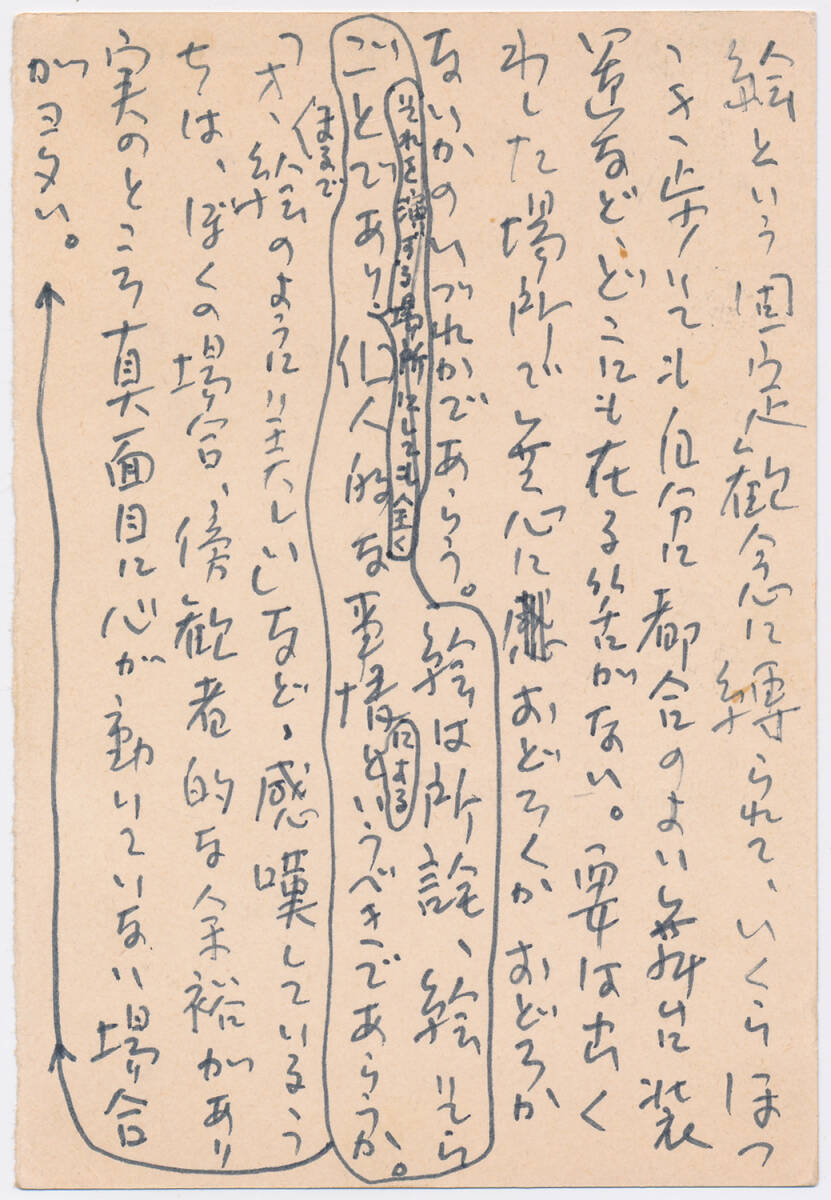 絵という固定観念に縛られて、いくらほつ
つき歩いても自分に都合のよい舞台装
置など、どこにも在る筈がない。要は出く
わした場所で無心におどろくかおどろか
ないかのいづれかであらう。絵は所詮、絵そら
それを演ずる場所にしても全く
ごとであり、個人的な事情というべきであらうか。
まるで
「オヽ、絵のように美しい」など、感嘆しているう
ちは、ぼくの場合、傍観者的な余裕があり
実のところ真面目に心が動いていない場合
が多い。